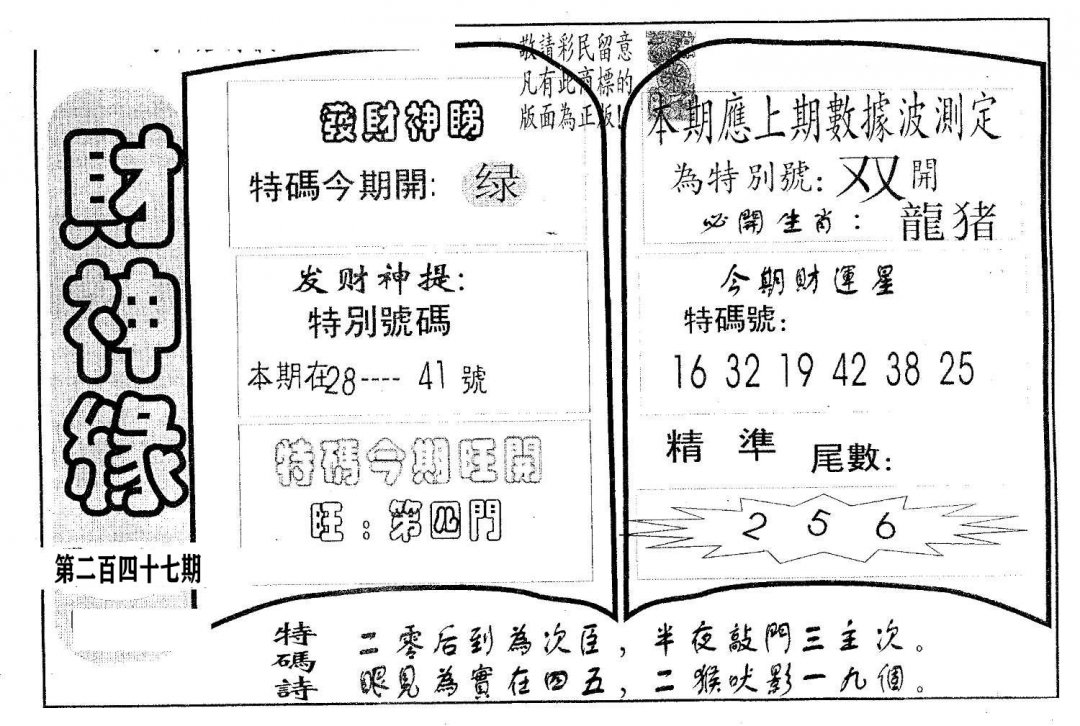 財神緣
第二百四十七期
敬請彩民留意
凡有此商標的
版面為正版!
發財神睇
特碼今期開: 绿
发财神提:
特別號碼
本期在28---- 41 號
特碼今期旺開
旺:第四門
本期應上期數據波測定
為特別號: 双 開
必開生肖: 龍猪
今期財運星
特碼號:
16 32 19 42 38 25
精 準 尾數:
2 5 6
特碼詩
二零后到為次臣,半夜敲門三主次。
眼見為實在四五,二猴吠影一九個。